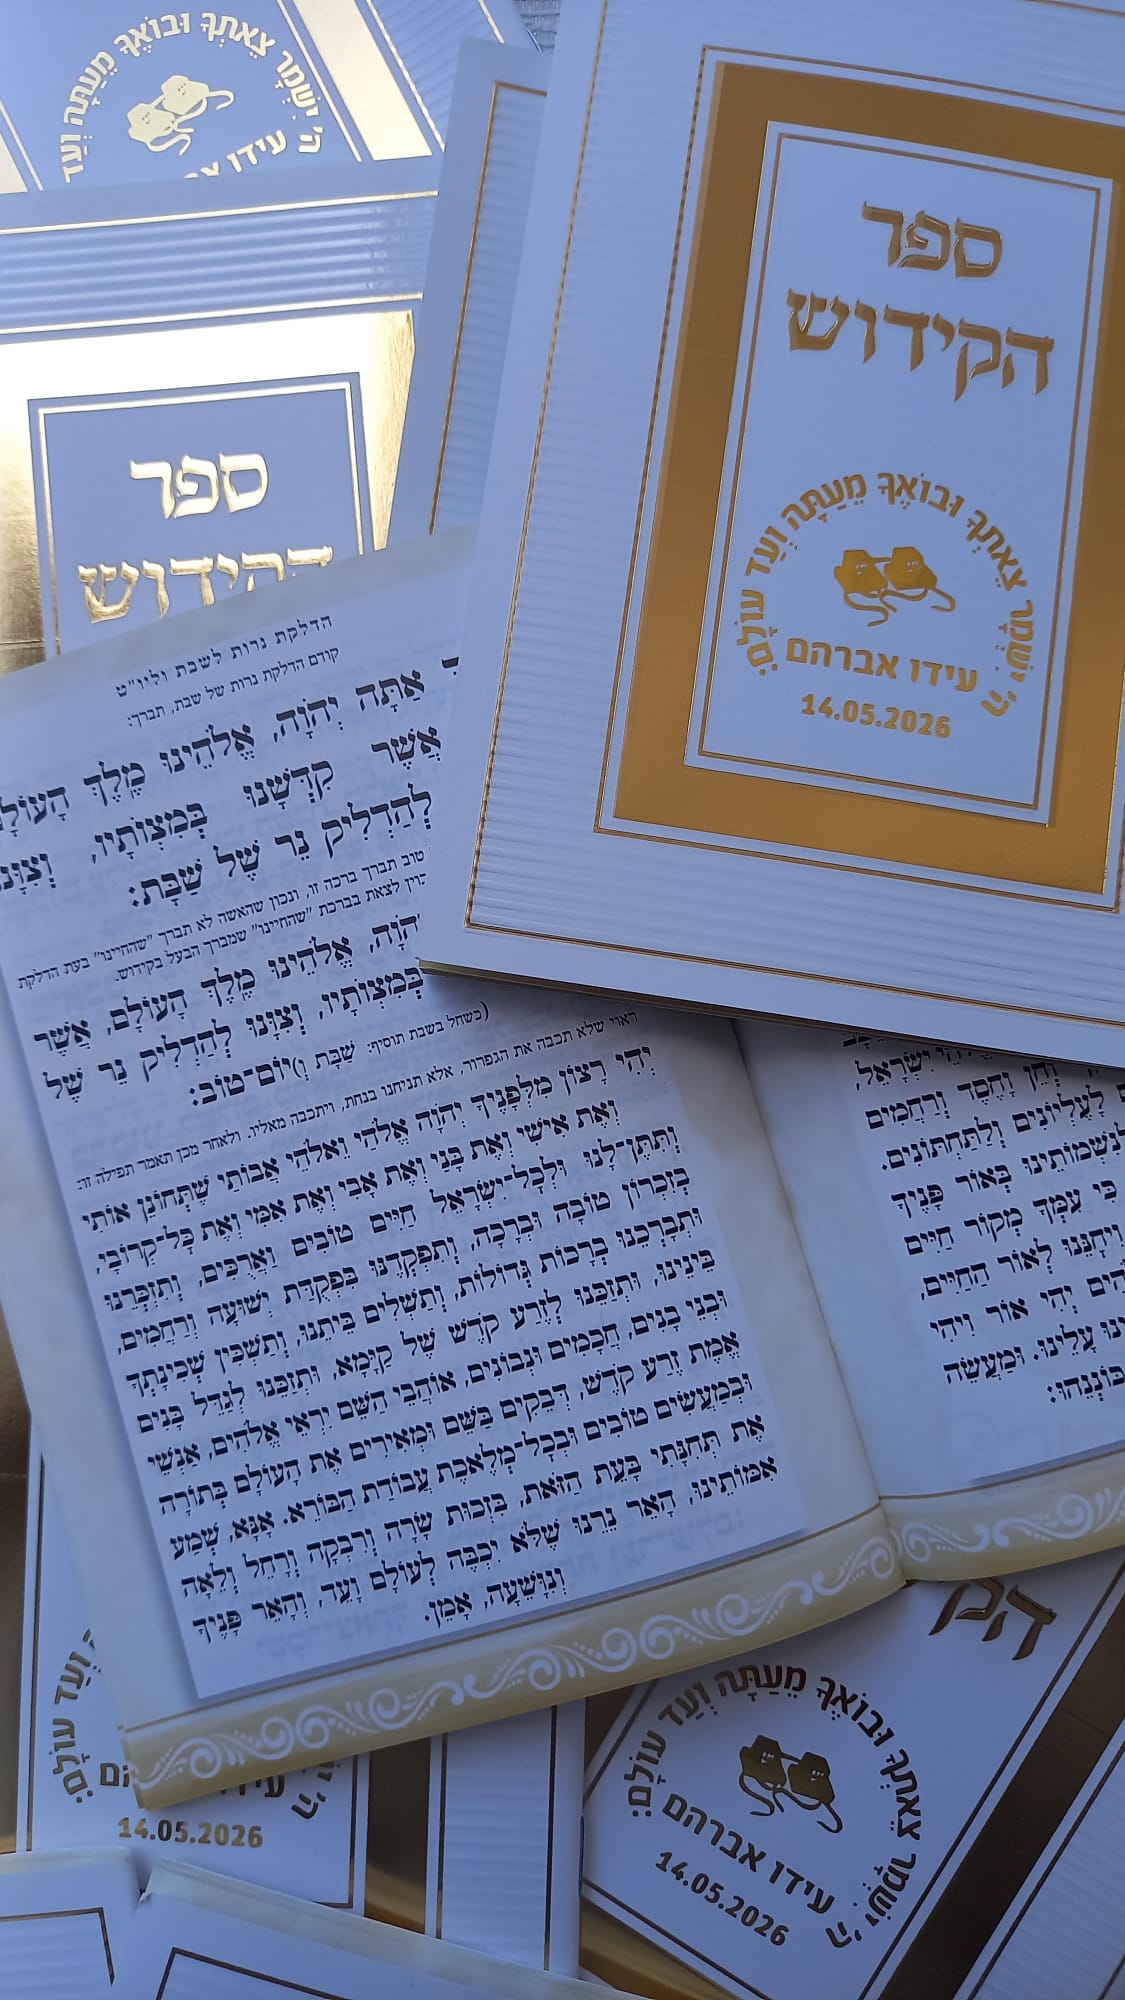 ה' יִשְׁמָר צֵאתְךָ וּבוֹאֶךָ מֵעַתָּה וְעַד
עידו
ספר
הקידוש
ספר
הקידוש
ה' יִשְׁמָר צֵאתְךָ וּבוֹאֶךָ מֵעַתָּה וְעַד עוֹלָם:
עידו אברהם
14.05.2026
הדלקת נרות לשבת וליו"ט
קודם הדלקת נרות של שבת, תברך:
אַתָּה יְהֹוָה, אֱלֹהֵינוּ מֶלֶךְ הָעוֹלָ
אֲשֶׁר קִדְּשָׁנוּ בְּמִצְוֹתָיו, וְצִוָּנוּ
לְהַדְלִיק נֵר שֶׁל שַׁבָּת:
טוב תברך ברכה זו, ונכון שהאשה לא תברך "שהחיינו" בעת הדלקת
לצאת בברכת "שהחיינו" שמברך הבעל בקידוש.
אֱלֹהֵינוּ מֶלֶךְ הָעוֹלָם, אֲשֶׁר
בְּמִצְוֹתָיו, וְצִוָּנוּ לְהַדְלִיק נֵר שֶׁל
(כשחל בשבת תוסיף: שַׁבָּת וְ)יוֹם-טוֹב:
ראוי שלא תכבה את הגפרור, אלא תניחנו בנחת, ויתכבה מאליו. ולאחר מכן תאמר תפילה זו:
יְהִי רָצוֹן מִלְּפָנֶיךָ יְהֹוָה אֱלֹהַי וֵאלֹהֵי אֲבוֹתַי שֶׁתְּחוֹנֵן אוֹתִי
וְאֶת אִישִׁי וְאֶת בָּנַי וְאֶת אָבִי וְאֶת אִמִּי וְאֶת כָּל-קְרוֹבַי,
וְתִתֶּן-לָנוּ וּלְכָל-יִשְׂרָאֵל חַיִּים טוֹבִים וַאֲרֻכִּים, וְתִזְכְּרֵנוּ
בְּזִכְרוֹן טוֹבָה וּבְרָכָה, וְתִפְקְדֵנוּ בִּפְקֻדַּת יְשׁוּעָה וְרַחֲמִים,
וּתְבָרְכֵנוּ בְּרָכוֹת גְּדוֹלוֹת, וְתַשְׁלִים בֵּיתֵנוּ, וְתַשְׁכֵּן שְׁכִינָתְךָ
בֵּינֵינוּ, וּתְזַכֵּנוּ לְזֶרַע קֹדֶשׁ שֶׁל קַיָּמָא, וּתְזַכֵּנוּ לְגַדֵּל בָּנִים
וּבְנֵי בָנִים, חֲכָמִים וּנְבוֹנִים, אוֹהֲבֵי הַשֵּׁם יִרְאֵי אֱלֹהִים, אַנְשֵׁי
אֱמֶת זֶרַע קֹדֶשׁ, דְּבֵקִים בַּשֵּׁם וּמְאִירִים אֶת הָעוֹלָם בְּתוֹרָה
וּבְמַעֲשִׂים טוֹבִים וּבְכָל-מְלֶאכֶת עֲבוֹדַת הַבּוֹרֵא. אָנָּא, שְׁמַע
אֶת תְּחִנָּתִי בָּעֵת הַזֹּאת, בִּזְכוּת שָׂרָה וְרִבְקָה וְרָחֵל וְלֵאָה
אִמּוֹתֵינוּ, הָאֵר נֵרֵנוּ שֶׁלֹּא יִכְבֶּה לְעוֹלָם וָעֶד, וְהָאֵר פָּנֶיךָ
וְנִוָּשֵׁעָה, אָמֵן.
יִשְׂרָאֵל,
וְחֵן וָחֶסֶד וְרַחֲמִים
לָעֶלְיוֹנִים וְלַתַּחְתּוֹנִים.
נִשְׁמוֹתֵינוּ בְּאוֹר פָּנֶיךָ
כִּי עִמְּךָ מְקוֹר חַיִּים
וִיחָנֵּנוּ לְאוֹר הַחַיִּים,
יְהִי אוֹר וַיְהִי
עָלֵינוּ. וּמַעֲשֵׂה
כּוֹנְנֵהוּ:
וְעַד עוֹלָם:
14.05.2026
ה' יִשְׁמָר צֵאתְךָ וּבוֹאֶךָ מֵעַתָּה וְעַד עוֹלָם:
עידו אברהם
14.05.2026